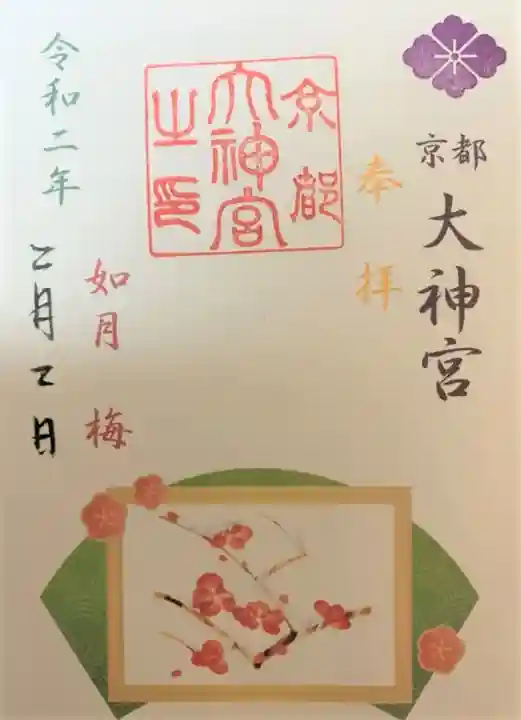 京都
大神宮
奉拝
京都
大神宮
之印
如月 梅
令和二年
二月二日